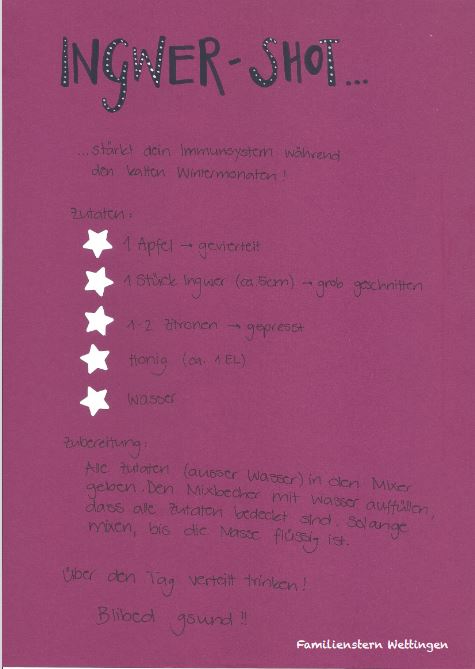 INGWER-SHOT...
...stärkt dein Immunsystem während
den kalten Wintermonaten!
Zutaten:
1 Apfel → geviertelt
1 Stück Ingwer (ca. 5cm) → grob geschnitten
1-2 Zitronen → gepresst
Honig (ca. 1 EL)
Wasser
Zubereitung:
Alle Zutaten (ausser Wasser) in den Mixer
geben. Den Mixbecher mit Wasser auffüllen,
dass alle Zutaten bedeckt sind. Solange
mixen, bis die Masse flüssig ist.
Über den Tag verteilt trinken!
Blibed gsund!!
Familienstern Wettingen